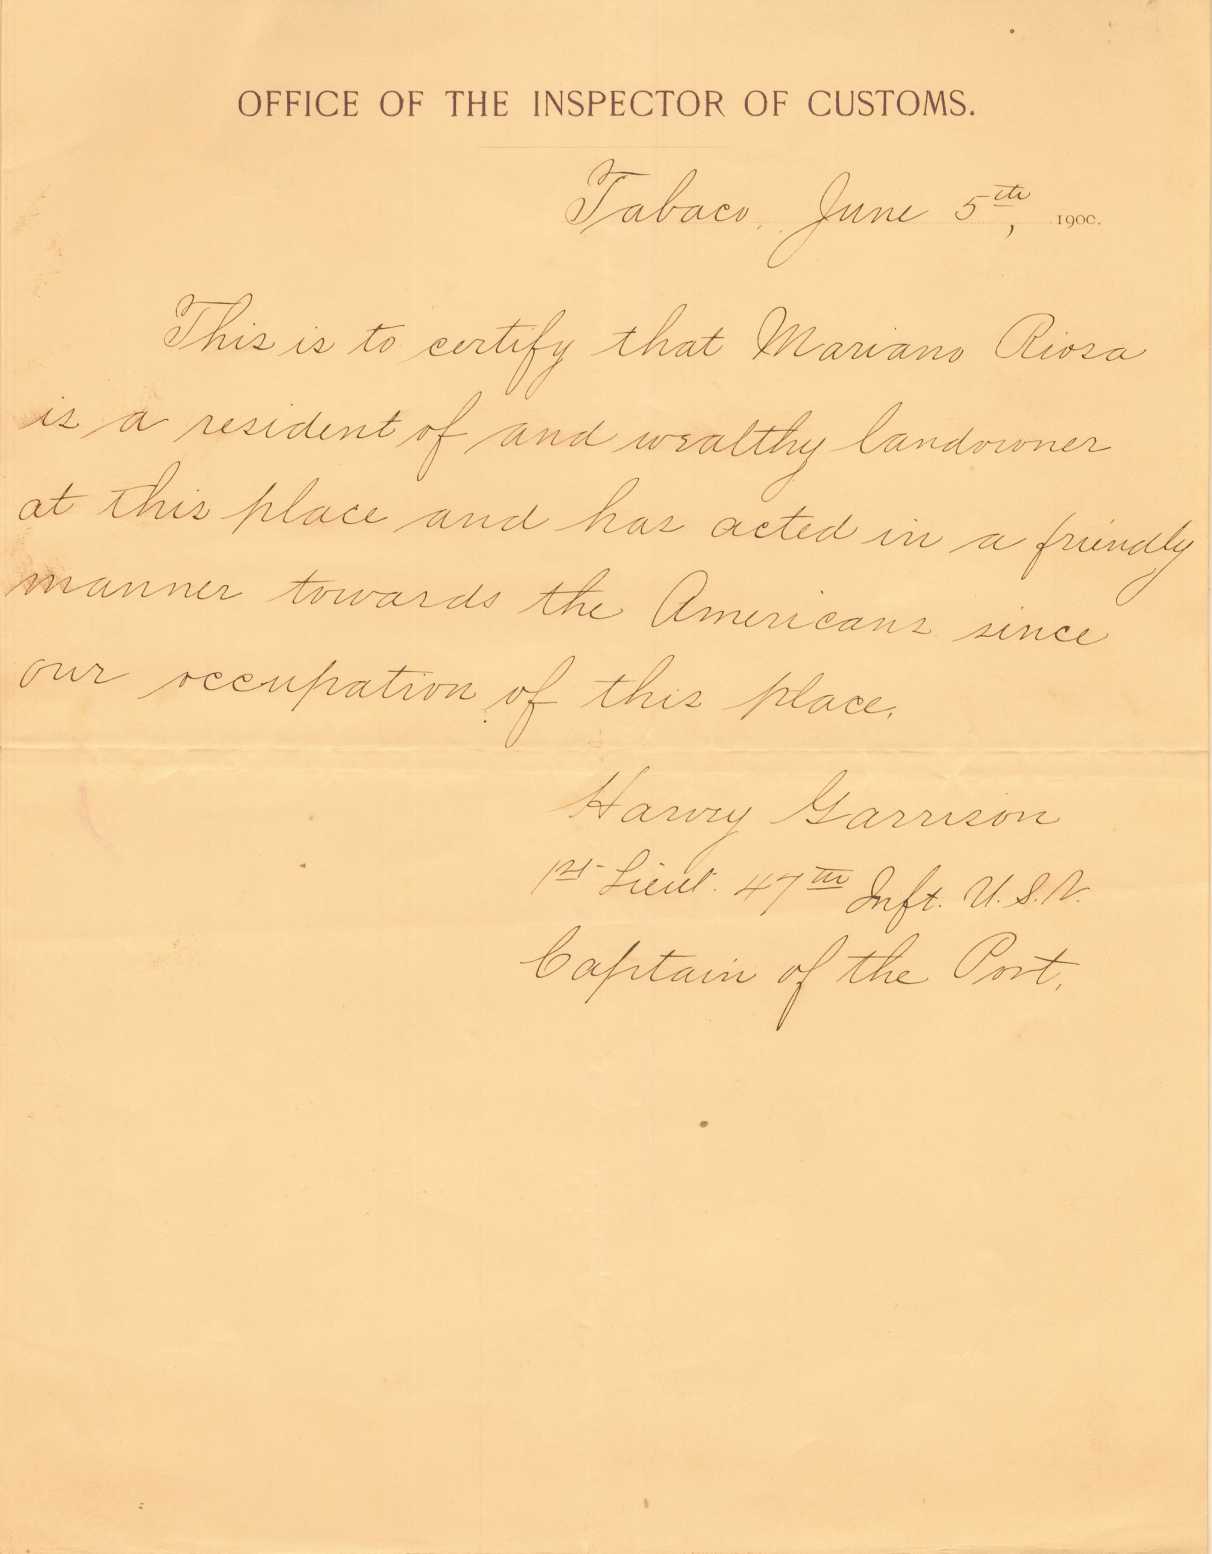 OFFICE OF THE INSPECTOR OF CUSTOMS.
Tabaco, June 5th, 1900.
This is to certify that Mariano Riosa
is a resident of and wealthy landowner
at this place and has acted in a friendly
manner towards the Americans since
our occupation of this place.
Harvey Garrison
1st Lieut. 47th Inft. U.S.V.
Captain of the Port.